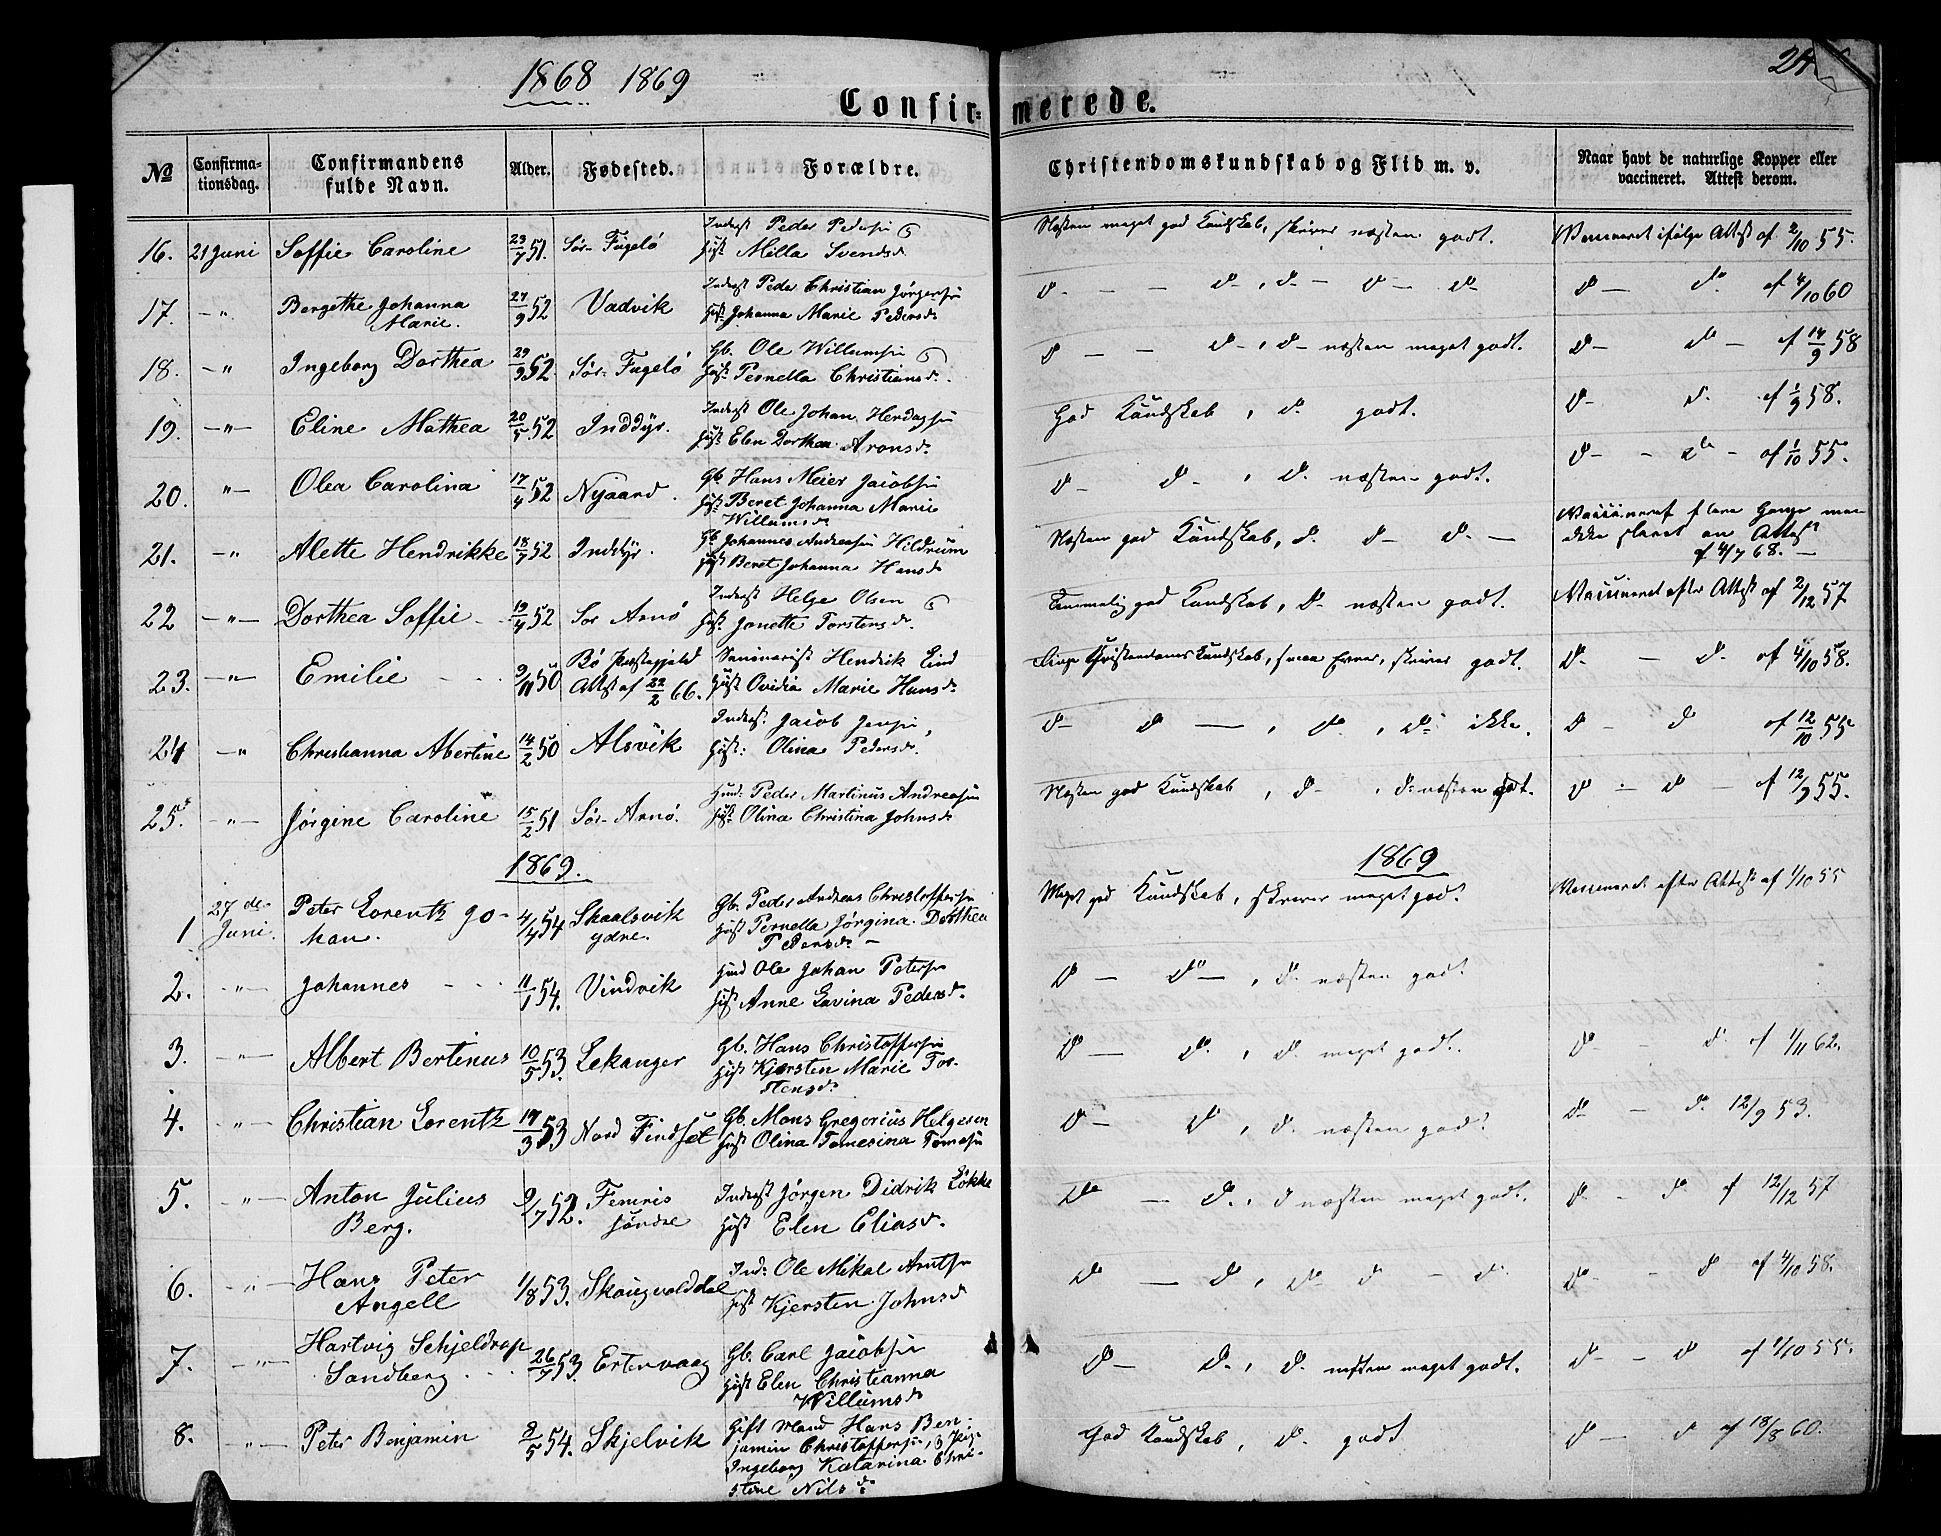 1868 1869
24
Confir-merede.
No Confirmationsdag. Confirmandens fulde Navn. Alder. Fødested. Forældre. Christendomskundskab og Flid m. v. Naar havt de naturlige Kopper eller vaccineret. Attest derom.
16. 21 Juni Soffie Caroline 23/7 51. Sør-Fugelø Inderst Peder Pedersen Hust Milla Svendsd. Næsten meget god Kundskab, skriver næsten godt. Vaccineret ifølge Attest af 2/10 55.
17. -"- Bergethe Johanna Marie. 27/9 52 Vadvik Inderst Peder Christian Jørgensen Hust. Johanna Marie Pedersd. d - - d., d - d - d d - d. af 4/10 60
18. -"- Ingeborg Dorthea 29/9 52. Sør-Fugelø Gb. Ole Willumsen Hust. Pernella Christiansd. d - - d., d næsten meget godt. d - d - af 14/9 58
19. -"- Eline Mathea 20/5 52 Inddyr. Inderst Ole Johan Herdagsen Hust. Elen Dorthea Aronsd. God Kundskab, d. godt. d - d. af 1/9 58.
20. -"- Olea Carolina 17/4 52 Nygaard. Gb. Hans Meier Jacobsen Hust. Beret Johanna Marie Willumsd. d - d., d. næsten godt. d - - d - af 1/10 55.
21. -"- Alette Hendrikke 18/7 52 Inddyr. Gb. Johannes Andreasen Hildrum Hust Beret Johanna Hansd. Næsten god Kundskab, d. d - d. - Vaccineret flere Gange men ikke slaaet an Attest af 4/7 68. -
22 -"- Dorthea Soffie - 19/4 52 Sør Arnø Inderst Helge Olsen Hust. Janette Torstensd. Temmelig god Kundskab, d. næsten godt. Vaccineret efter Attest af 2/12 57
23. -"- Emilie - - 9/11 50 Bø Præstegjeld Attest af 22/2 66. Seminarist Hendrik Lind Hust. Ovidia Marie Hansd. Ringe Christendomskundskab, smaa Evner, skriver godt. d. - d. af 4/10 58.
24 -"- Christianna Abertine 14/2 50 Alsvik Inderst. Jacob Jensen, Hust: Olina Pedersd. d - d -, d., d. ikke. d - d af 12/10 55
25. -"- Jørgine Caroline 15/2 51 Sør-Arnø. Huusmd. Peder Martinus Andreasen Hust. Olina Christina Johnsd. Næsten god Kundskab, d -, d. næsten godt. d - d - af 12/9 55.
1869.
1869
1 27de Juni. Peter Lorentz Johan. 4/4 54 Skaalsvik ydre. Gb. Peder Andreas Christoffersen Hust Pernella Jørgina Dorthea Pedersd. - Meget god Kundskab, skriver meget god. Vaccineret efter Attest af 1/10 55
2. -"- Johannes - - 11/1 54. Vindvik Huusmd Ole Johan Petersen Hust Anne Lavina Pedersd. d - d -, d. næsten godt
3. -"- Albert Bertinus 10/5 53. Lekanger Gb. Hans Christoffersen Hust Kjersten Marie Torstensd. d - d., d. meget godt. d - d. af 1/11 62.
4. -"- Christian Lorentz 17/3 53 Nord Findset Gb. Mons Gregorius Helgesen Hust Olina Tomesina Tomasd d - d, d. næsten god. d - d. 12/9 53.
5. -"- Anton Julius Berg. 9/7 52. Femris søndre Inderst Jørgen Didrik Løkke Hust Elen Eliasd. d - d., d næsten meget godt. d - d. af 12/12 57
6. -"- Hans Peter Angell 1/8 53. Skougvolddal Ind. Ole Mikal Arntsen Hust Kjersten Johnsd d - d, d d - d. d - d af 4/10 58.
7. -"- Hartvig Schjeldrop Sandberg. - - 26/7 53. Ertenvaag Gb. Carl Jacobsen Hust Elen Christianna Willumsd. d - d., d. næsten meget godt. d - d af 1/10 55.
8. -"- Peter Benjamin 8/5 54. Skjelvik Gift Mand Hans Benjamin Christoffersen, & Pige Ingeborg Katarina Christine Nilsd. God Kundskab, d. godt d - d af 18/8 60.